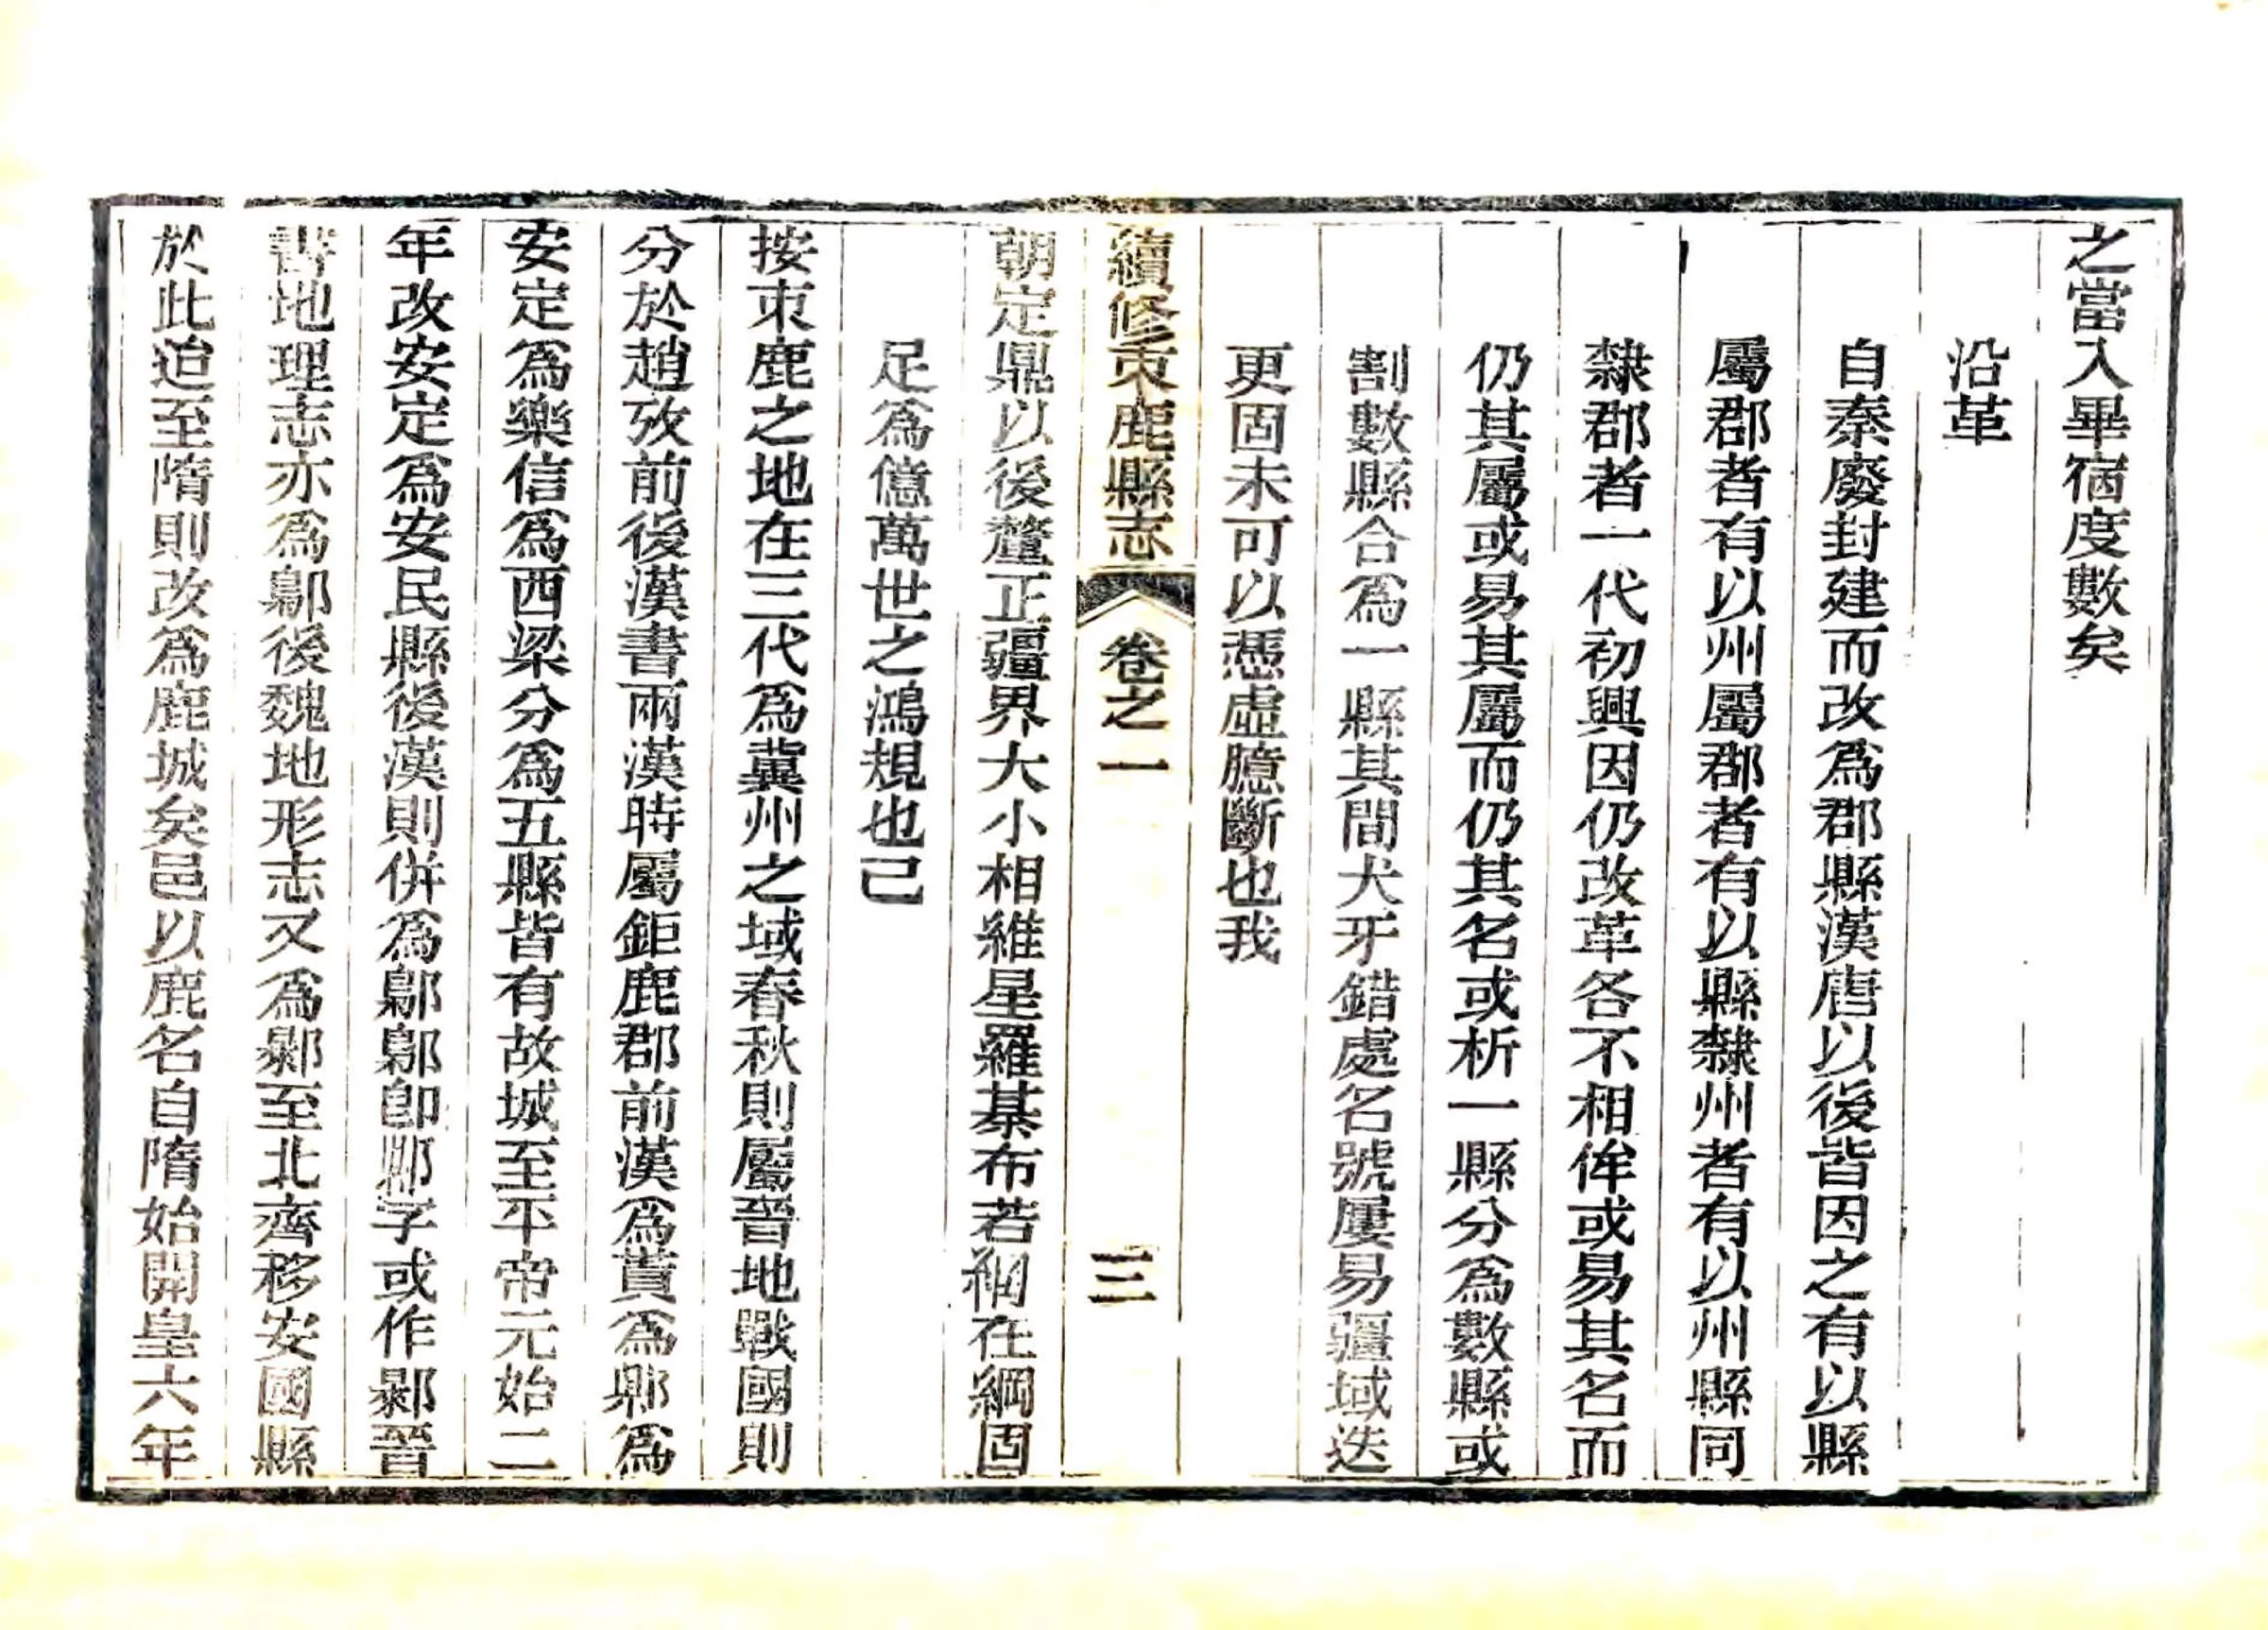 之當入畢宿度數矣
沿革
自秦廢封建而改爲郡縣漢唐以後皆因之有以縣
屬郡者有以州屬郡者有以縣隸州者有以州縣同
隸郡者一代初興因仍改革各不相侔或易其名而
仍其屬或易其屬而仍其名或析一縣分爲數縣或
割數縣合爲一縣其間犬牙錯處名號屢易疆域迭
更固未可以憑虛臆斷也我
續修束鹿縣志 卷之一 三
朝定鼎以後釐正疆界大小相維星羅棊布若網在綱固
足爲億萬世之鴻規也已
按束鹿之地在三代爲冀州之域春秋則屬晉地戰國則
分於趙攷前後漢書兩漢時屬鉅鹿郡前漢爲貰爲鄡爲
安定爲樂信爲西梁分爲五縣皆有故城至平帝元始二
年改安定爲安民縣後漢則併爲鄡鄡卽鄡字或作鄡晉
書地理志亦爲鄡後魏地形志又爲鄡至北齊移安國縣
於此迨至隋則改爲鹿城矣邑以鹿名自隋始開皇六年